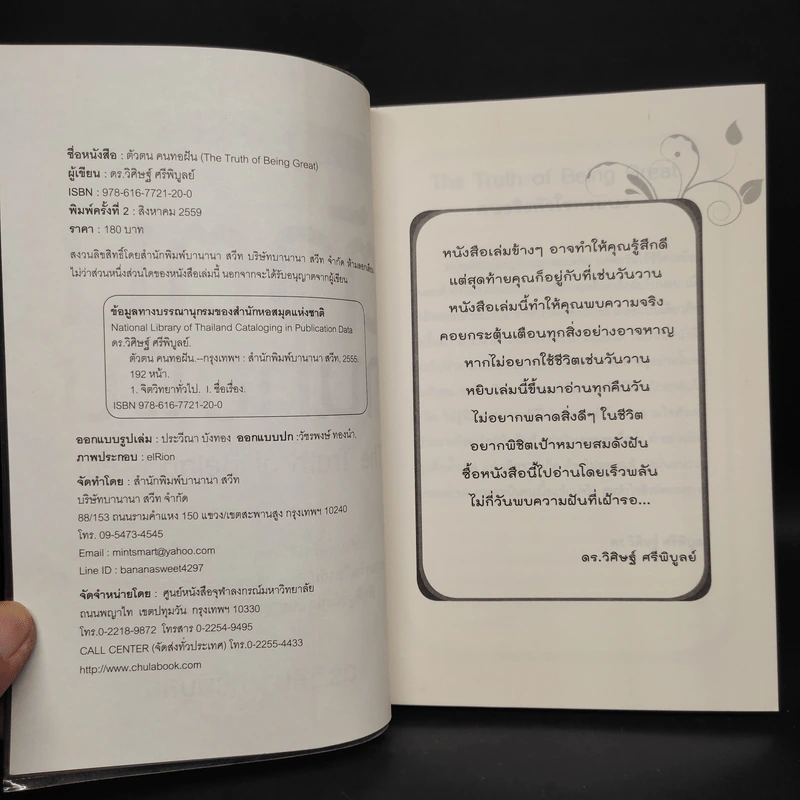 ชื่อหนังสือ : ตัวตน คนทอฝัน (The Truth of Being Great)
ผู้เขียน : ดร.วิศิษฐ์ ศรีพิบูลย์
ISBN : 978-616-7721-20-0
พิมพ์ครั้งที่ 2 : สิงหาคม 2559
ราคา : 180 บาท
สงวนลิขสิทธิ์โดยสำนักพิมพ์บานานา สวีท บริษัทบานานา สวีท จำกัด
ไม่ว่าส่วนหนึ่งส่วนใดของหนังสือเล่มนี้ นอกจากจะได้รับอนุญาตจากผู้เขียน
ข้อมูลทางบรรณานุกรมของสำนักหอสมุดแห่งชาติ
National Library of Thailand Cataloging in Publication Data
ดร.วิศิษฐ์ ศรีพิบูลย์.
ตัวตน คนทอฝัน.--กรุงเทพฯ : สำนักพิมพ์บานานา สวีท, 2555.
192 หน้า.
1. จิตวิทยาทั่วไป. I. ชื่อเรื่อง.
ISBN 978-616-7721-20-0
ออกแบบรูปเล่ม : ประวีณา บังทอง ออกแบบปก :วัชรพงษ์ ทองนำ.
ภาพประกอบ : elRion
จัดทำโดย : สำนักพิมพ์บานานา สวีท
บริษัทบานานา สวีท จำกัด
88/153 ถนนรามคำแหง 150 แขวง/เขตสะพานสูง กรุงเทพฯ 10240
โทร. 09-5473-4545
Email : mintsmart@yahoo.com
Line ID : bananasweet4297
จัดจำหน่ายโดย : ศูนย์หนังสือจุฬาลงกรณ์มหาวิทยาลัย
ถนนพญาไท เขตปทุมวัน กรุงเทพฯ 10330
โทร.0-2218-9872 โทรสาร 0-2254-9495
CALL CENTER (จัดส่งทั่วประเทศ) โทร.0-2255-4433
http://www.chulabook.com
หนังสือเล่มข้างๆ อาจทำให้คุณรู้สึกดี
แต่สุดท้ายคุณก็อยู่กับที่เช่นวันวาน
หนังสือเล่มนี้ทำให้คุณพบความจริง
คอยกระตุ้นเตือนทุกสิ่งอย่างอาจหาญ
หากไม่อยากใช้ชีวิตเช่นวันวาน
หยิบเล่มนี้ขึ้นมาอ่านทุกคืนวัน
ไม่อยากพลาดสิ่งดีๆ ในชีวิต
อยากพิชิตเป้าหมายสมดังฝัน
ซื้อหนังสือนี้ไปอ่านโดยเร็วพลัน
ไม่กี่วันพบความฝันที่เฝ้ารอ...
ดร.วิศิษฐ์ ศรีพิบูลย์